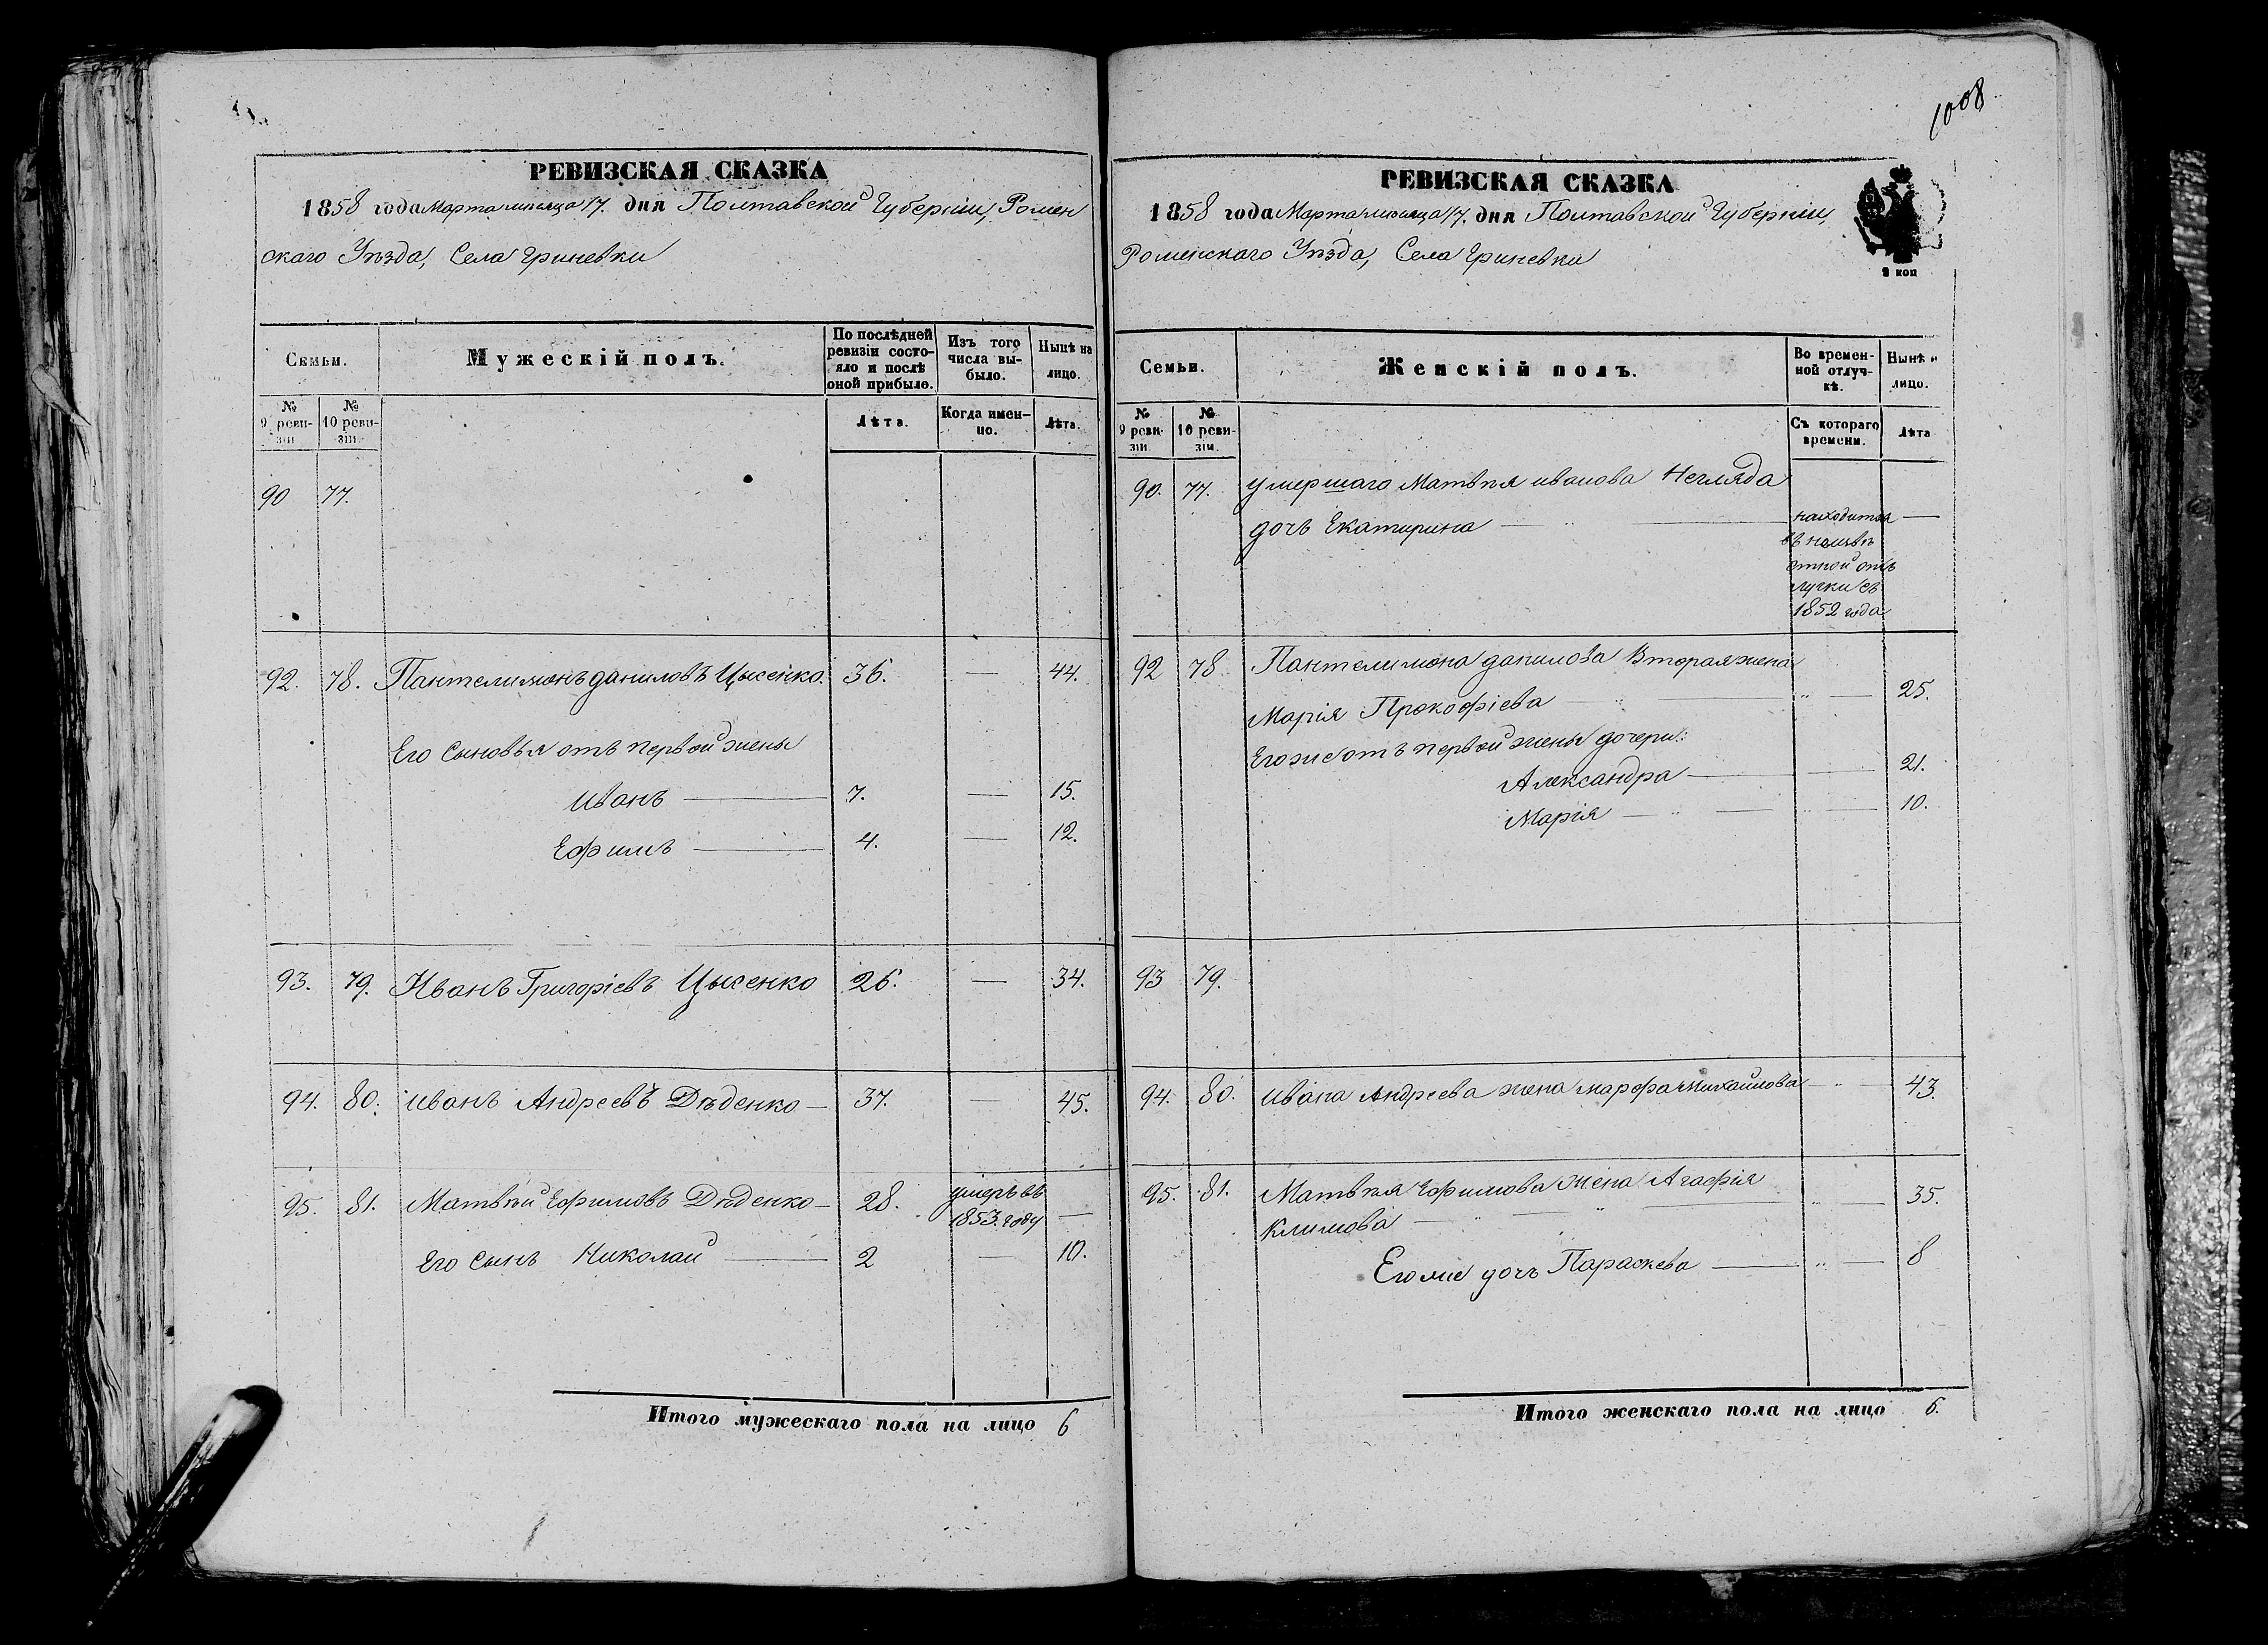 1008
РЕВИЗСКАЯ СКАЗКА
1858 года Марта мѣсяца 17. дня Полтавской Губерніи, Ромен
скаго Уѣзда, Села Гриневки
Семьи.
Мужескій полъ.
По послѣдней ревизіи состояло и послѣ оной прибыло.
Изъ того числа выбыло.
Нынѣ на лицо.
№ 9 ревизіи
№ 10 ревизіи.
Лѣта.
Когда именно.
Лѣта.
90 77.
92. 78. Пантелимонъ Даниловъ Цысенко. 36. — 44.
Его Сыновья отъ первой жены
Иванъ — 7. — 15.
Ефимъ — 4. — 12.
93. 79. Иванъ Григоріевъ Цысенко 26. — 34.
94. 80. Иванъ Андреевъ Дѣденко — 37. — 45.
95. 81. Матвѣй Ефимовъ Дѣденко — 28. умеръ въ 1853. году —
Его Сынъ Николай — 2 — 10.
Итого мужескаго пола на лицо 6
РЕВИЗСКАЯ СКАЗКА
1858 года Марта мѣсяца 17. дня Полтавской Губерніи,
Роменскаго Уѣзда, Села Гриневки
2 коп
Семьи.
Женскій полъ.
Во временной отлучкѣ.
Нынѣ н лицо.
№ 9 ревизіи
№ 10 ревизіи.
Съ котораго времени.
Лѣта
90. 77. умершаго Матвѣя Иванова Негляда
дочь Екатирина — находится —
въ неизвѣ
стной от
лучки съ
1852 года
92 78 Пантелимона Данилова Вторая жена
Марія Прокофіева — " — 25.
Его же отъ первой жены дочери:
Александра — 21.
Марія — " — 10.
93 79.
94. 80. Ивана Андреева жена Марфа Михайлова — " — 43.
95. 81. Матвѣя Ефимова жена Агафія
Климова — " — 35.
Его же дочь Параскева — " — 8
Итого женскаго пола на лицо 6.